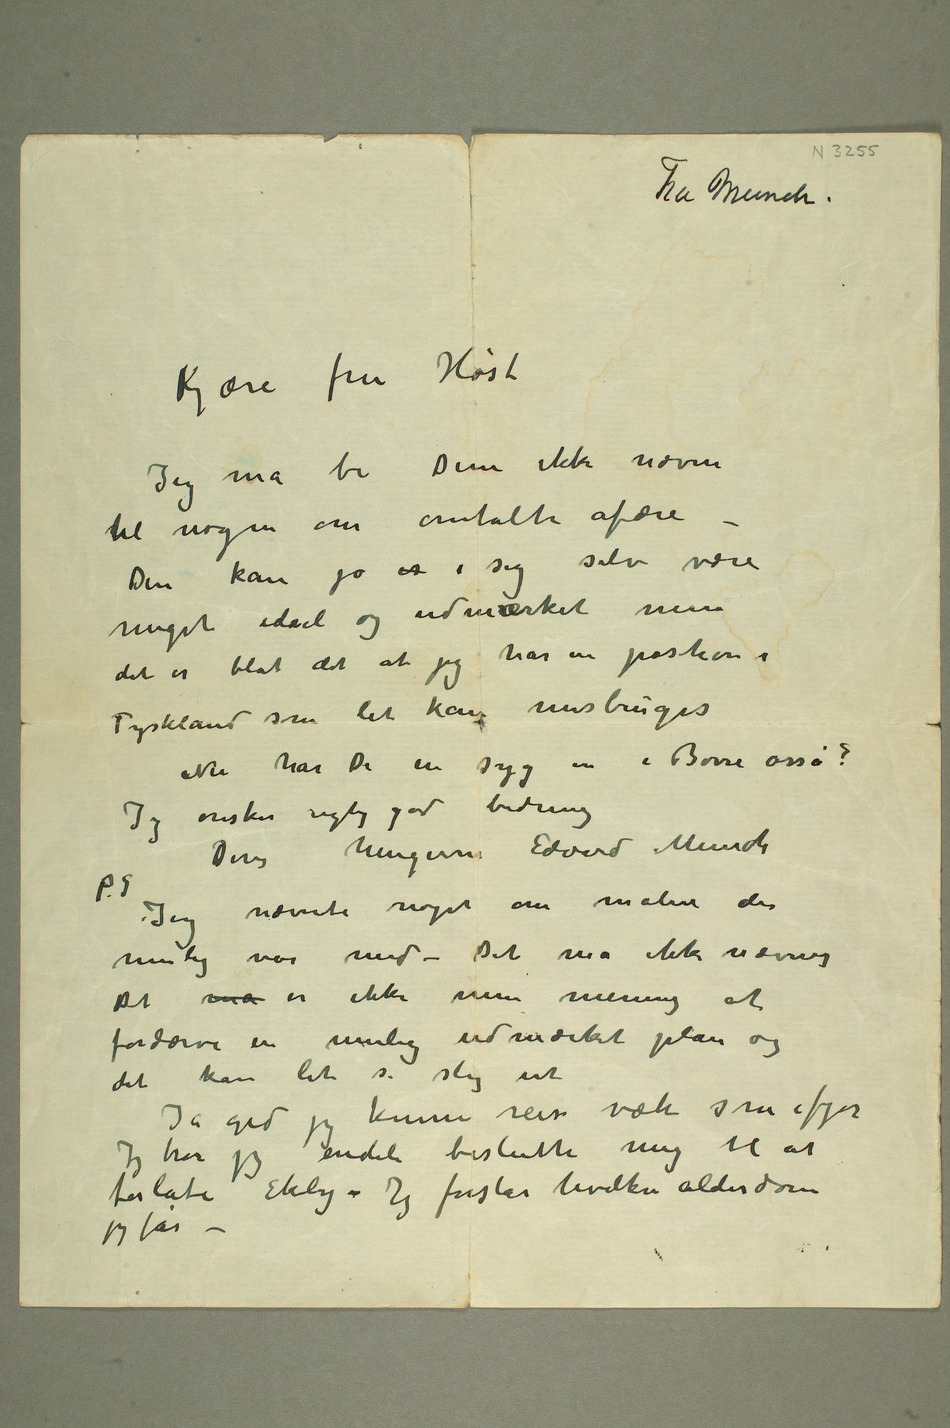 N 3255
Fra Munch.
Kjære fru Høst
Jeg må be Dem ikke nævne
til nogen om omtalte afære –
Den kan jo i sig selv være
meget ideel og udmærket men
det er blåt det at jeg har en position i
Tyskland som let kan misbruges
Nu har De en syg en i Borre osså?
Jeg ønsker rigtig god bedring
Deres hengivne Edvard Munch
P.S
Jeg nævnte noget om malere der
mulig var med – Det må ikke nævnes
Det må er ikke min mening at
fordærve en mulig udmærket plan og
det kan let se slig ut
Ja gid jeg kunne reise væk som ifjor
Jeg tror jeg endele beslutte mig til at
forlate Ekely – Jeg forstår hvilken alderdom
jeg får –